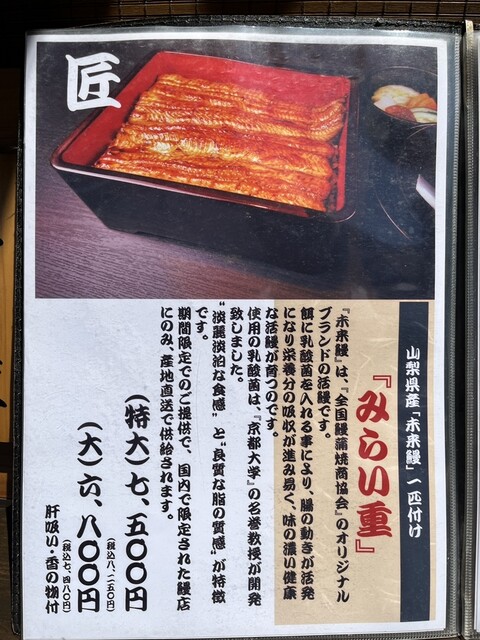 匠
山梨県産「未来鰻」一匹付け
『みらい重』
『未来鰻』は、『全国鰻蒲焼商協会』のオリジナル
ブランドの活鰻です。
餌に乳酸菌を入れる事により、腸の動きが活発
になり栄養分の吸収が進み易く、味の濃い健康
な活鰻が育つのです。
使用の乳酸菌は、『京都大学』の名誉教授が開発
致しました。
“淡麗淡泊な食感” と “良質な脂の質感” が特徴
です。
期間限定でのご提供で、国内で限定された鰻店
にのみ、産地直送で供給されます。
（特大）七、五〇〇円
（税込八、二五〇円）
（大）六、八〇〇円
（税込七、四八〇円）
肝吸い・香の物付